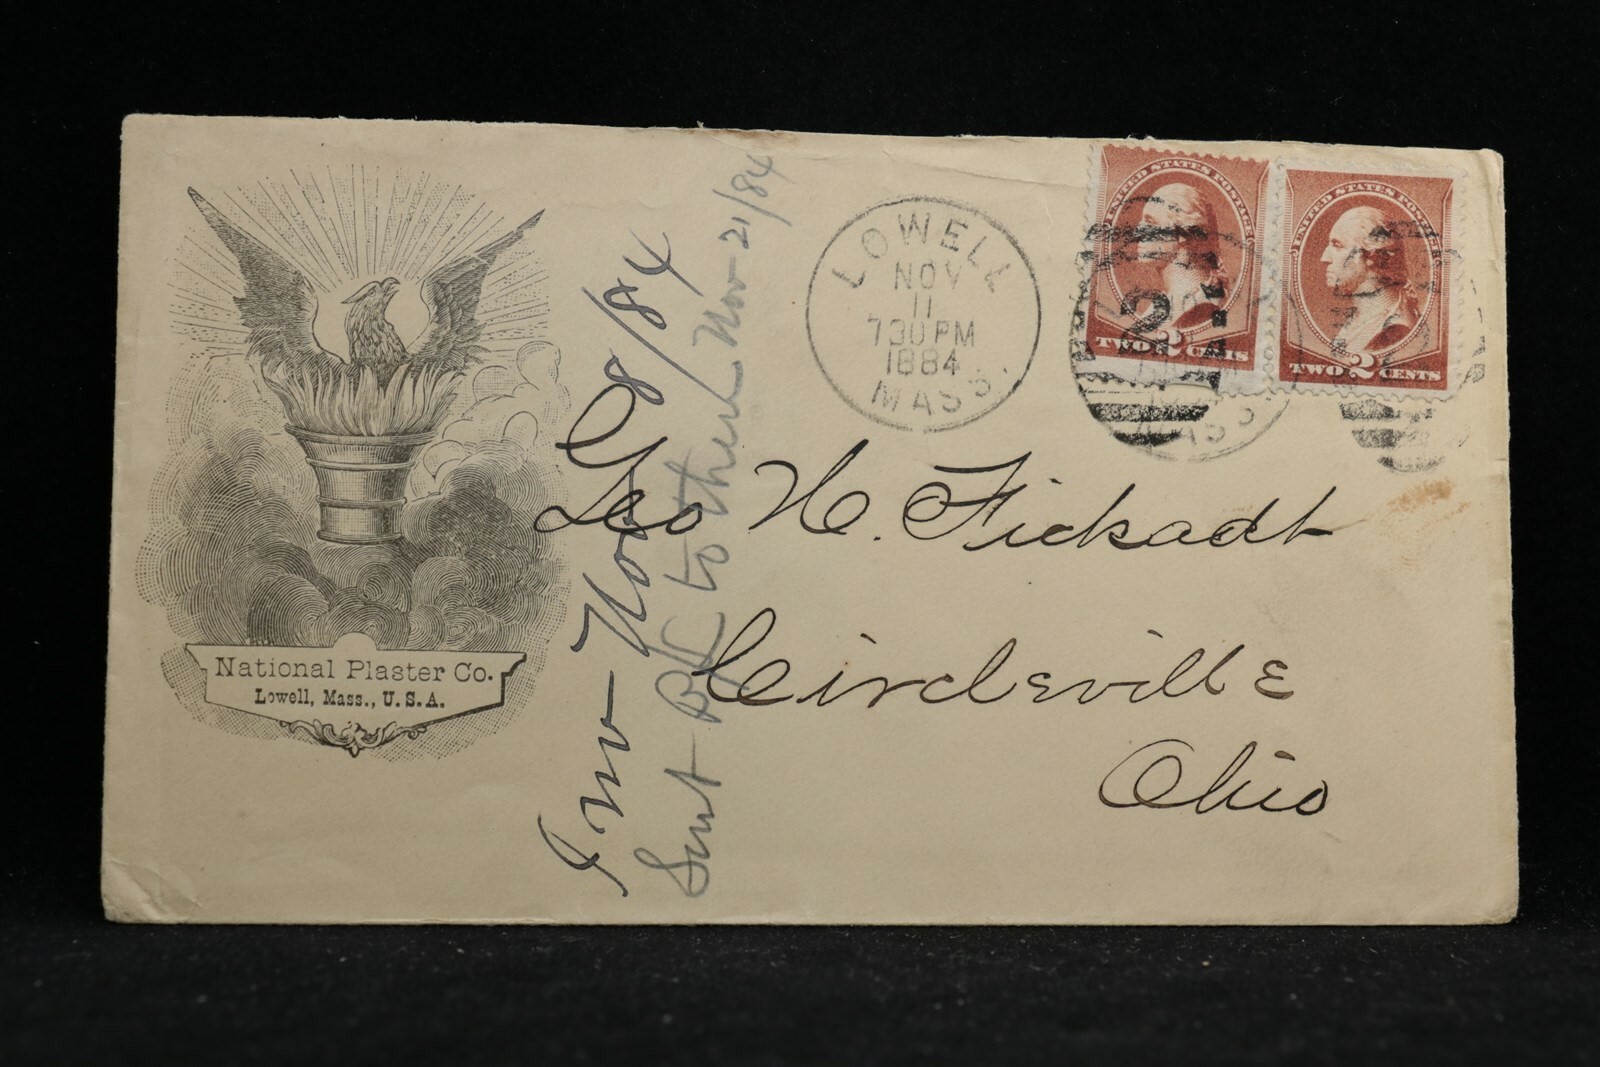 National Plaster Co.
Lowell, Mass., U.S.A.
LOWELL
NOV
11
730 PM
1884
MASS.
UNITED STATES POSTAGE
TWO 2 CENTS
2
MASS.
UNITED STATES POSTAGE
TWO 2 CENTS
Geo H. Fickardt
Circleville
Ohio
Inv - Nov 8/84
Sent to them Nov 21/84